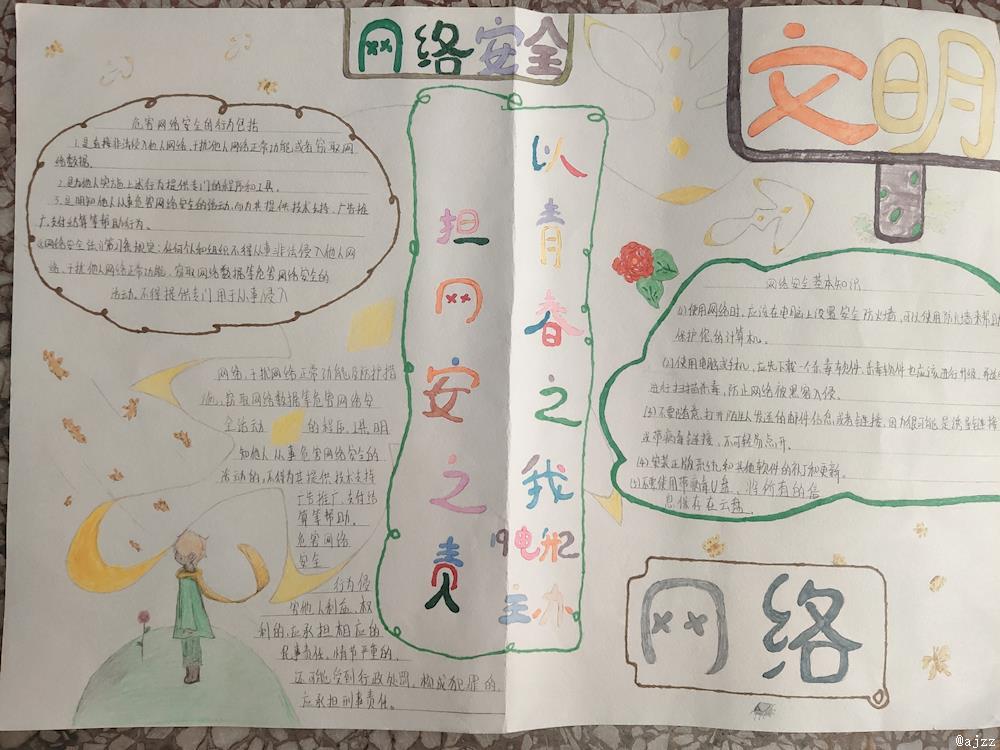 网络安全
文明
危害网络安全的行为包括
1.是直接非法侵入他人网络、干扰他人网络正常功能或者窃取网
络数据。
2.是为他人实施上述行为提供专门的程序和工具。
3.是明知他人从事危害网络安全的活动,向为其提供技术支持、广告推
广、支付结算等帮助行为。
网络安全法
任何个人和组织不得从事非法侵入他人网
络、干扰他人网络正常功能、窃取网络数据等危害网络安全的
活动,不得提供专门用于从事侵入
网络、干扰网络正常功能及防护措
施、窃取网络数据等危害网络安
全活动的程序、工具,明
知他人从事危害网络安全的
活动的,不得为其提供技术支持
广告推广、支付结
算等帮助。
危害网络
安全
行为侵
害他人利益、权
利的,应承担相应的
民事责任,情节严重的,
还可能受到行政处罚,构成犯罪的,
应承担刑事责任。
以青春之我
担网安之责
19电船2
主办
网络安全基本知识
(1)使用网络时,应该在电脑上设置安全防火墙,可以使用防火墙来帮
保护您的计算机。
(2)使用电脑或手机,应先下载一个杀毒软件,杀毒软件也应该进行升级,
进行扫描杀毒,防止网络被黑客入侵。
(3)不要随意打开陌生人发送的邮件信息,或者链接,因为很可能是诱导链接
或带病毒链接,不可轻易点开。
(4)安装正版系统和其他软件的补丁和更新。
(5)不要使用带病毒U盘、将所有的信
息保存在云盘
网络
@ajzz